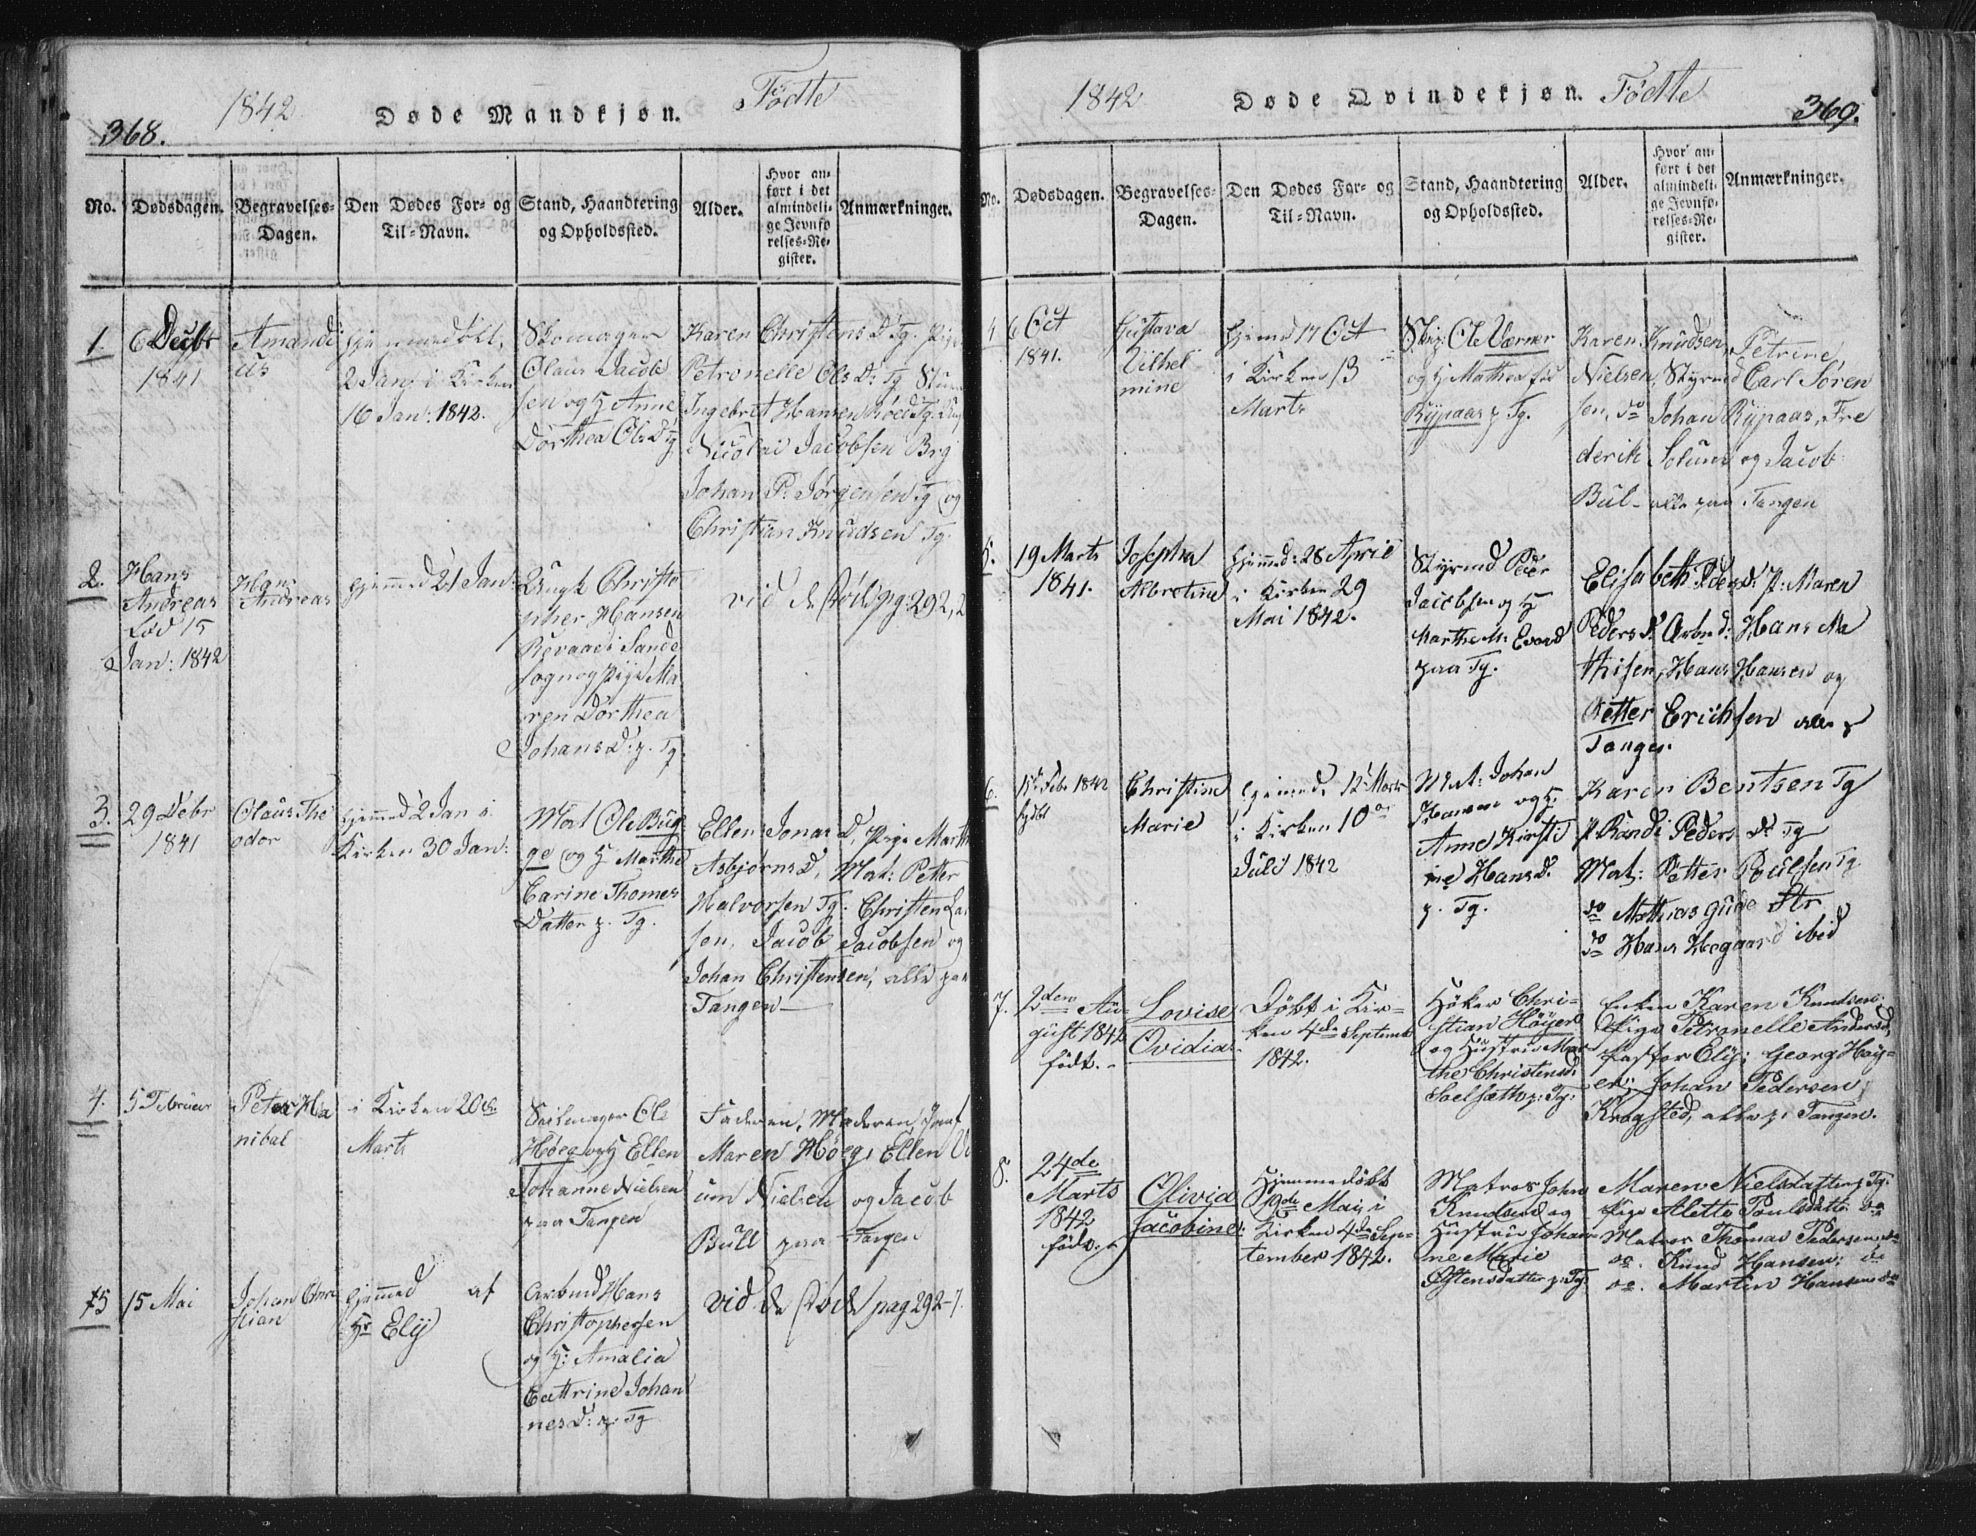 368.
1842
Døde Mandkjøn.
Fødte
No.
Dødsdagen.
Begravelses-
Dagen.
Den Dødes For- og
Til-Navn.
Stand, Haandtering
og Opholdssted.
Alder.
Hvor an-
ført i det
almindeli-
ge Jevnfø
relses-Re-
gister.
Anmærkninger.
1.
6 Decbr
1841
Amandi
us
hjemmedøbt,
2 Jan: i Kirken
16 Jan: 1842.
Skomager
Olaus Jacob
sen og H Anne
Dorthea Ols D Tg
Karen Christens D: Tg. Pige
Petronelle Ols D: Tg
Ingebret Hansen Tg.
Nicolai Jacobsen Brg
Johan P: Jørgensen Tg og
Christian Knudsen Tg.
2.
Hans
Andreas
født 15
Jan: 1842
Hans
Andreas
hjemmed 21 Jan:
Ungk Christo
pher Hansen
Revaae i Sande
Sogn og Pige Ma
ren Dorthea
Johans D: p. Tg.
vid de døde pg: 292, 2
3.
29 Debr
1841
Olaus The
odor
hjemmed 2 Jan i
Kirken 30 Jan:
Mat Ole Bug
ge og H Marthe
Carine Thomes
Datter p. Tg.
Ellen Jonas D, Pige Marth
Asbjørns D, Mat: Petter
Halvorsen Tg. Christen La
sen, Jacob Jacobsen og
Johan Christensen, alle paa
Tangen
4.
5 Februar
Peter Ha
nibal
i Kirken 20de
Marts
Seilmager Ole
Høeg og H Ellen
Johanne Nielsen
paa Tangen
Faderen, Moderen,
Maren Høeg, Ellen
um Nielsen og Jacob
Bull paa Tangen
5
15 Mai
Johan Chri
stian
hjemmed af
Hr Ely
Arbmd Hans
Christophersen
og H: Amalia
Cathrine Johan
nes D: p. Tg
vid de døde pag 292-7.
369.
1842
Døde Qvindekjøn.
Fødte
No.
Dødsdagen.
Begravelses-
Dagen.
Den Dødes For- og
Til-Navn.
Stand, Haandtering
og Opholdssted.
Alder.
Hvor an-
ført i det
almindeli-
ge Jevnfø-
relses-Re-
gister.
Anmærkninger.
4
6 Oct
1841.
Gustava
Vilhel
mine
hjemd 17 Oct
i Kirken 13
Marts
Skip: Ole Værner
og H Mathea fød
Rypaas p Tg.
Karen Knudsen, Petrine
Nielsen, Styrmd Carl Søren
sen, do Johan Rypaas, Fre
derik Solum og Jacob
Bul- alle paa Tangen
5.
19 Marts
1841.
Josepha
Albretine
hjemmed: 28 April
i Kirken 29
Mai 1842.
Styrmd Peder
Jacobsen og H
Marthe M: Evard
paa Tg.
Elisabeth Peders D. P: Maren
Peders D Arbmd: Hans Ma
thisen, Hans Hansen og
Petter Erichsen alle p
Tangen.
6.
15 Feb: 1842
født
Christine
Marie
hjemmed, 12 Marts
i Kirken 10de
Juli 1842
Mat: Johan
Hansen og H.
Anne Kirsti
ne Hans D.
p. Tg.
Karen Bentsen Tg
P. Randi Peders D: Tg
Mat: Petter Poulsen Tg
do Mathias Gude Str
do Hans Hegaard ibid
7.
2den Au-
gust 1842
født.
Lovise
Ovidia
Døbt i Kir-
ken 4de Septembr
1842.
Høker Chri-
stian Høyer
og Hustrue Mar
the Christensd:
Saelsætt p: Tg:
Enken Karen Knudsen:
Pige Petronelle Andersd,
Pastor Ely; Georg Høy-
er; Johan Pedersen
Kragsted, alle p: Tangen.
8.
24de
Marts
1842
født.
Olivia
Jacobine:
Hjemmedøbt
19de Mai, i
Kirken 4de Sep-
tember 1842.
Matros John
Knudsen og
Hustrue Johan-
ne Marie
Østensdatter p: Tg:
Maren Nielsdatter p Tg:
Pige Alette Poulsdatt: do
Matros Thomas Pedersen do
do. Knud Hansen: do
do. Martin Hansen do